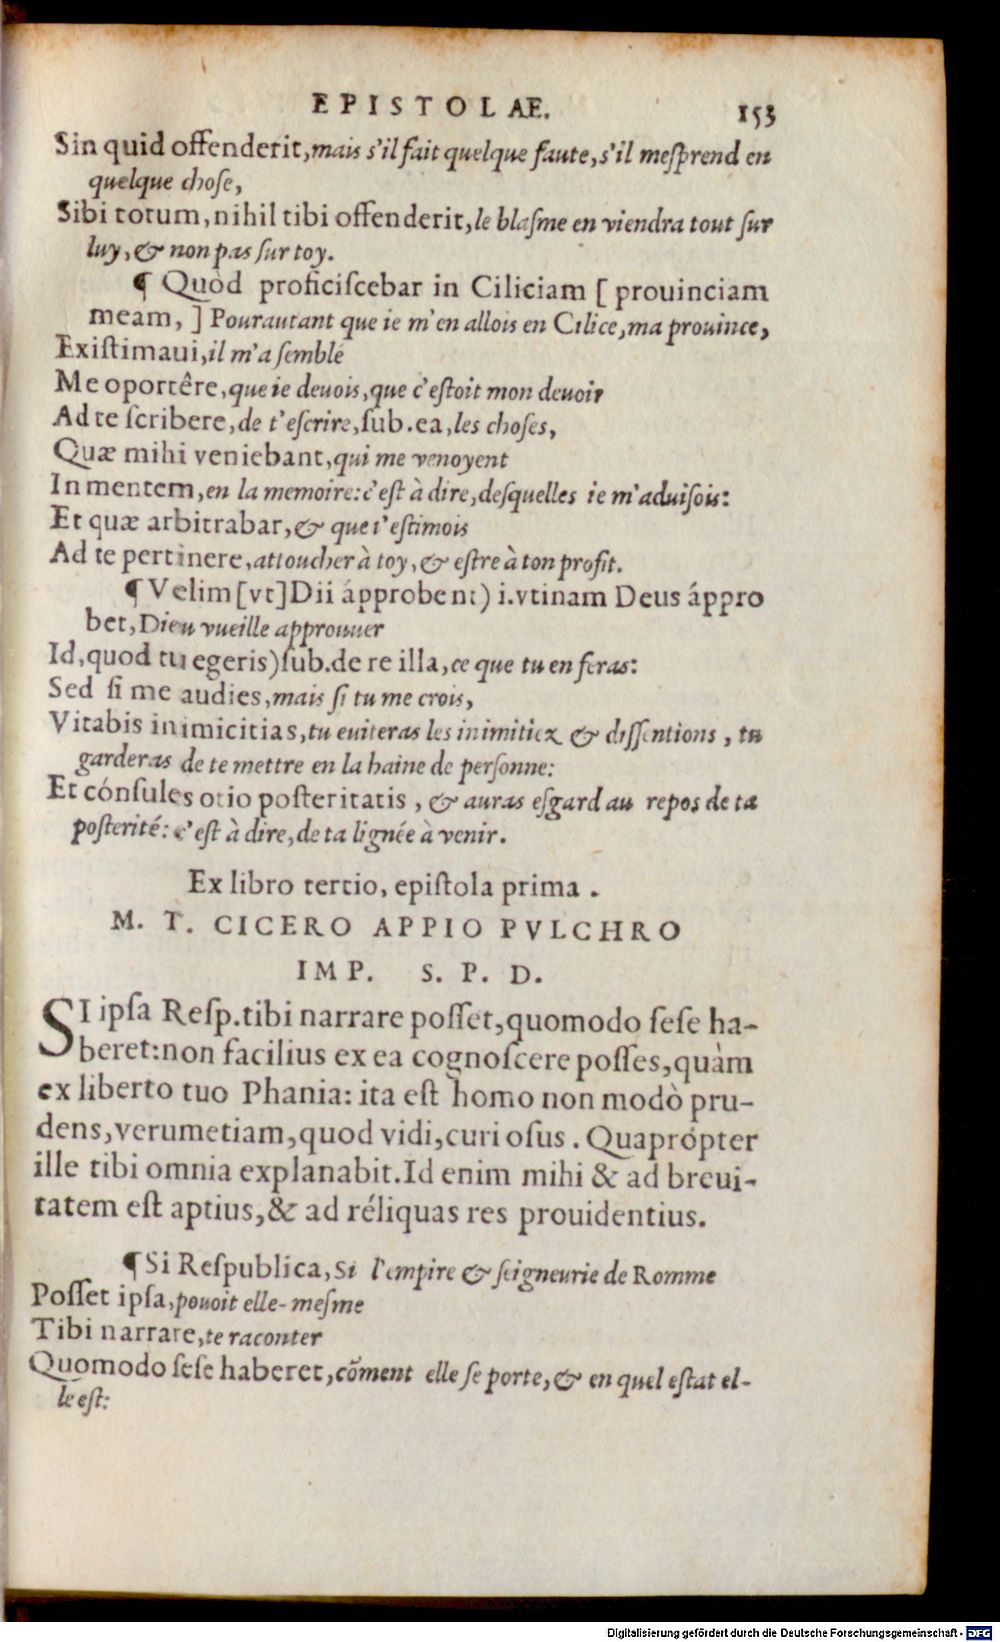 EPISTOLAE. 153
Sin quid offenderit, mais s'il fait quelque faute, s'il meſprend en
quelque choſe,
Sibi totum, nihil tibi offenderit, le blaſme en viendra tout ſur
luy, & non pas ſur toy.
¶ Quòd proficiſcebar in Ciliciam [ prouinciam
meam, ] Pourautant que ie m'en allois en Cilice, ma prouince,
Existimaui, il m'a ſemblé
Me oportêre, que ie deuois, que c'eſtoit mon deuoir
Ad te ſcribere, de t'eſcrire, ſub. ea, les choſes,
Quæ mihi veniebant, qui me venoyent
In mentem, en la memoire: c'eſt à dire, deſquelles ie m'aduiſois:
Et quæ arbitrabar, & que i'eſtimois
Ad te pertinere, attoucher à toy, & eſtre à ton profit.
¶ Velim [vt] Dii ápprobent) i. vtinam Deus áppro
bet, Dieu vueille approuuer
Id, quod tu egeris) ſub. de re illa, ce que tu en feras:
Sed ſi me audies, mais ſi tu me crois,
Vitabis inimicitias, tu euiteras les inimitiez & diſſentions, tu
garderas de te mettre en la haine de perſonne:
Et cónſules otio poſteritatis, & auras eſgard au repos de ta
poſterité: c'eſt à dire, de ta lignée à venir.
Ex libro tertio, epiſtola prima.
M. T. CICERO APPIO PVLCHRO
IMP. S. P. D.
SI ipſa Reſp. tibi narrare poſſet, quomodo ſeſe ha-
beret: non facilius ex ea cognoſcere poſſes, quàm
ex liberto tuo Phania: ita eſt homo non modò pru-
dens, verumetiam, quod vidi, curioſus. Quaprópter
ille tibi omnia explanabit. Id enim mihi & ad breui-
tatem eſt aptius, & ad réliquas res prouidentius.
¶ Si Reſpublica, Si l'empire & ſeigneurie de Romme
Poſſet ipſa, pouoit elle-meſme
Tibi narrare, te raconter
Quomodo ſeſe haberet, cõment elle ſe porte, & en quel eſtat el-
le eſt:
Digitalisierung gefördert durch die Deutsche Forschungsgemeinschaft - DFG